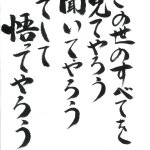 この世のすべてを
見てやろう
聞いてやろう
そして
悟ってやろう